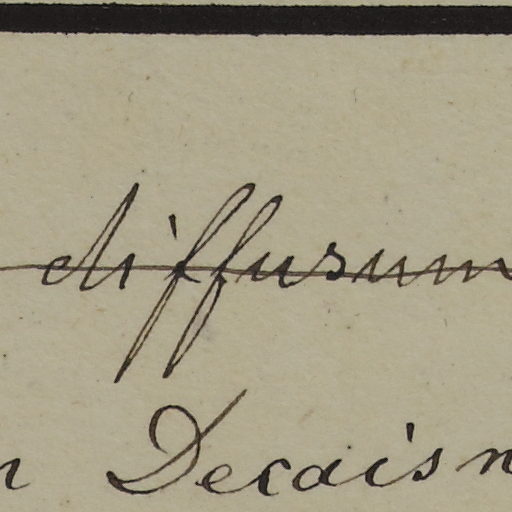 diffusum
n Decaisn